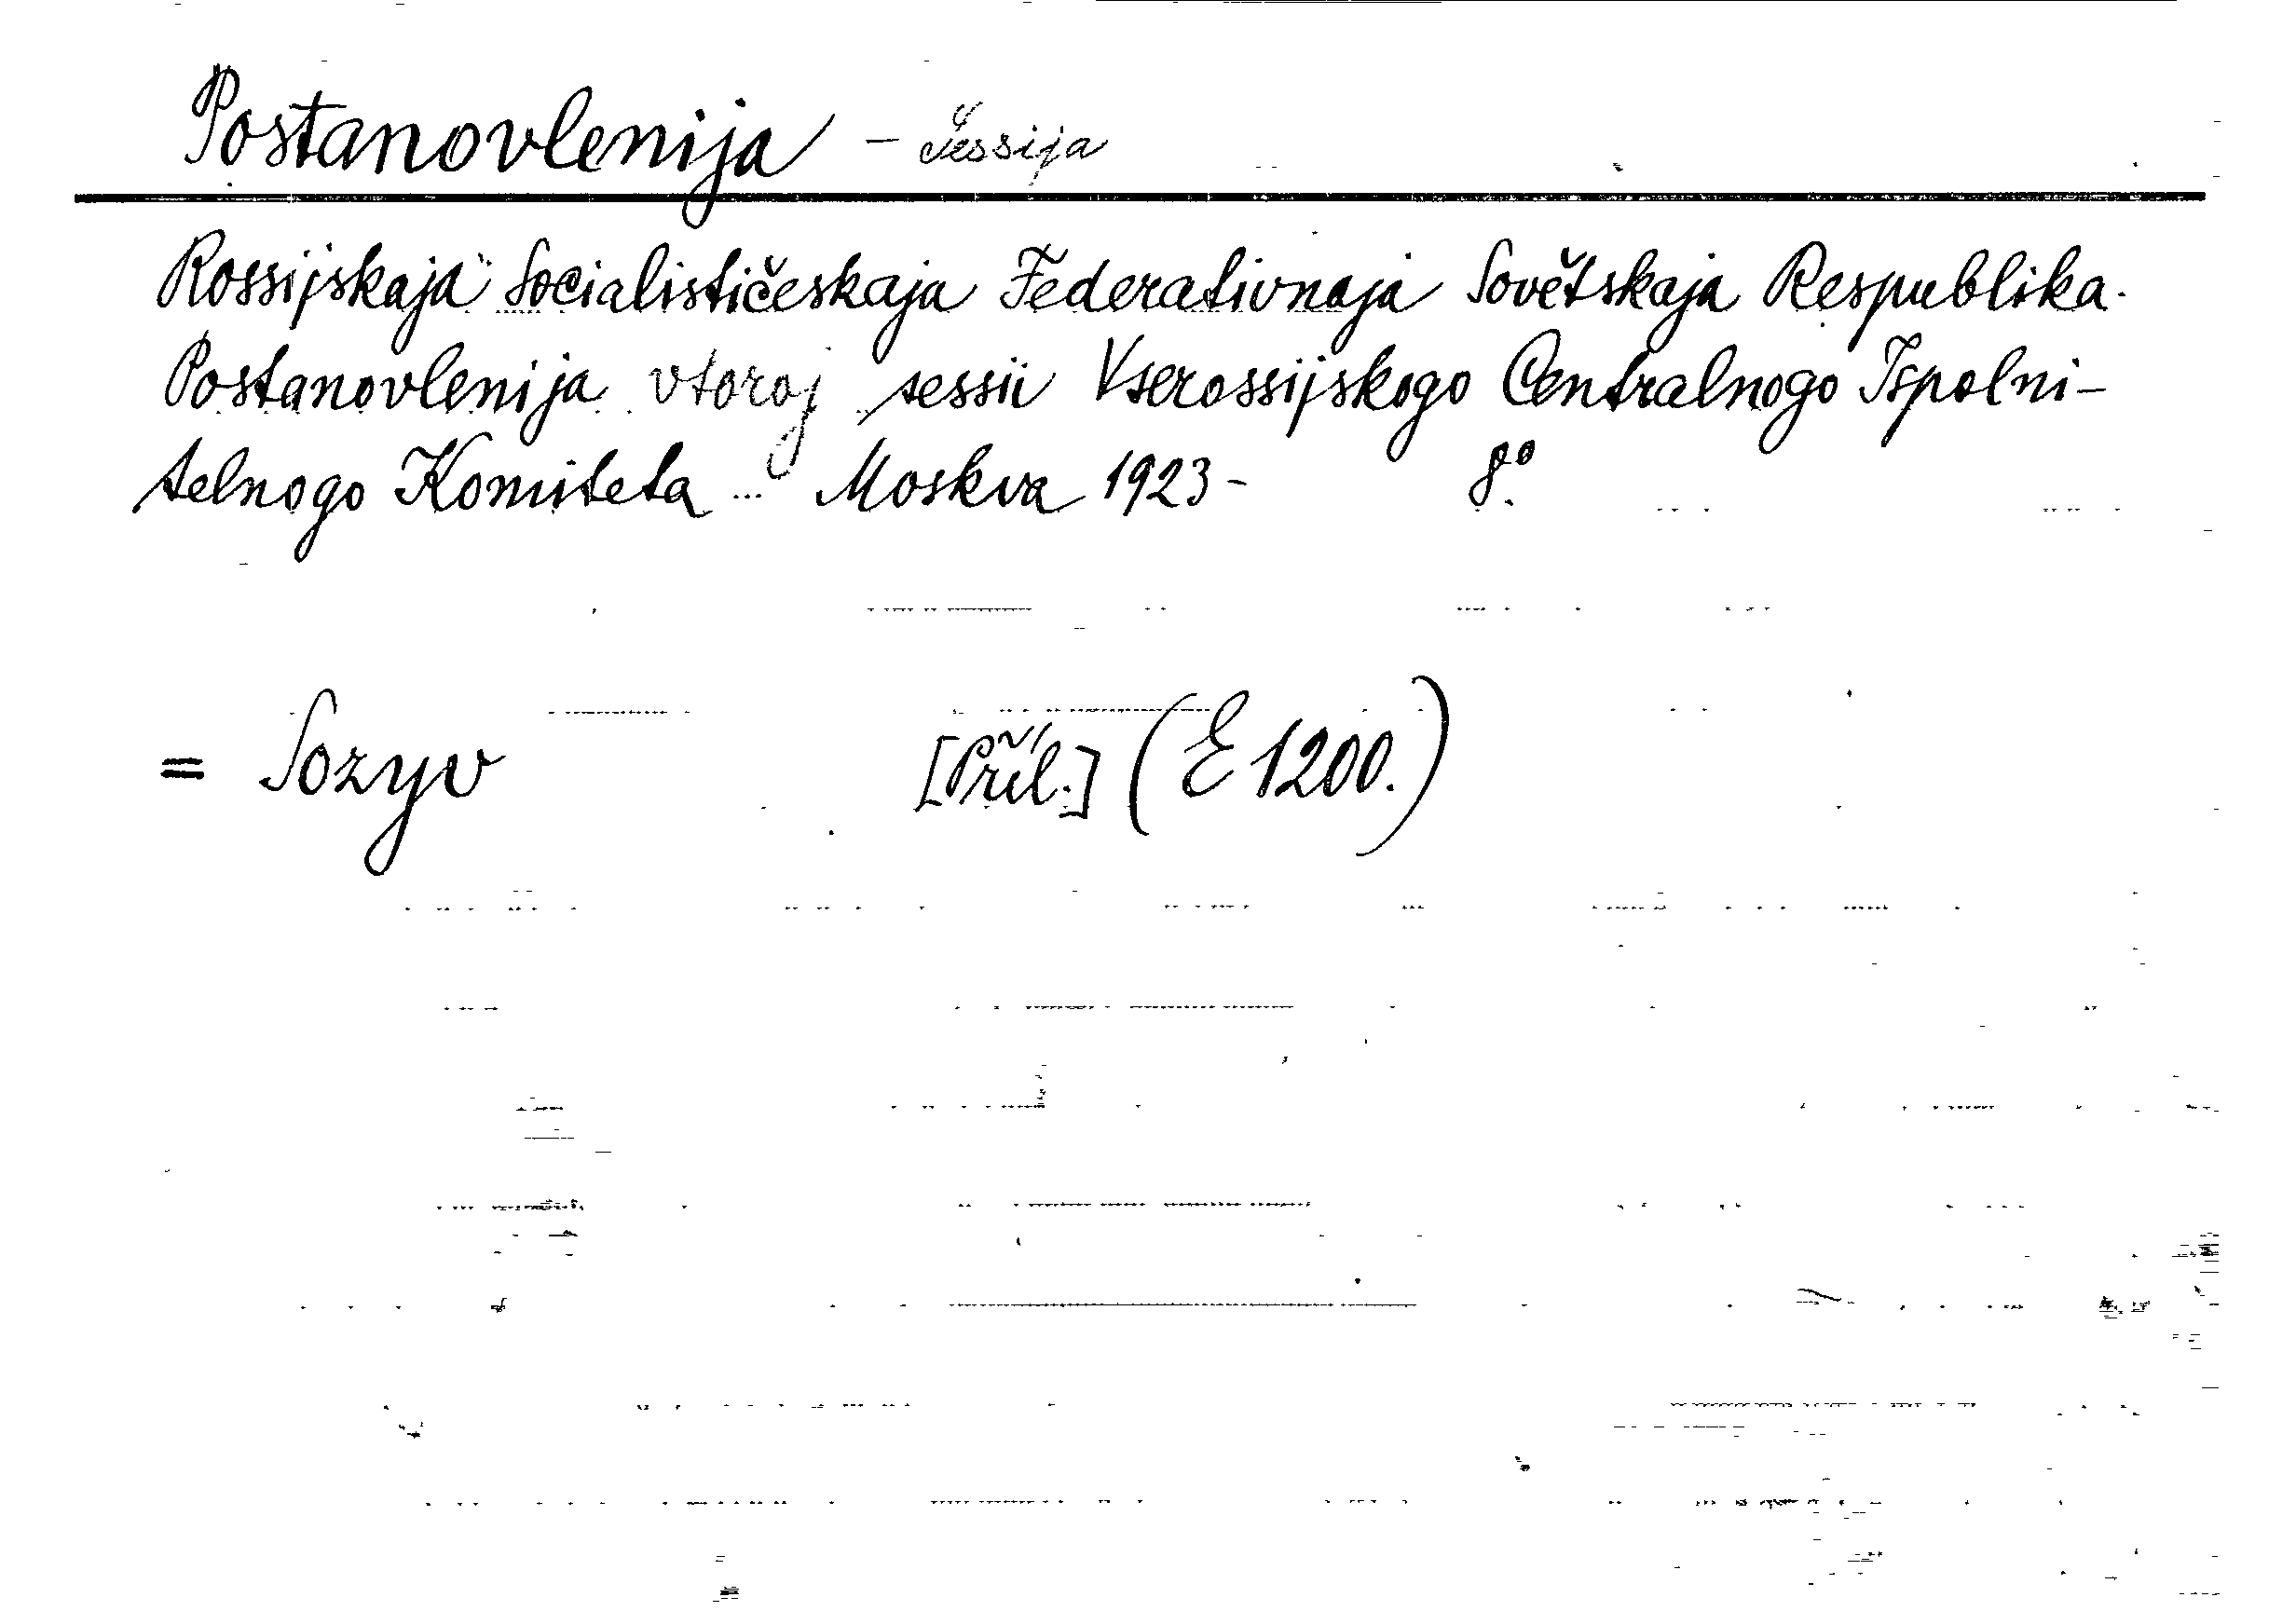 Postanovlenija – Sessija
Rossijskaja Socialističeskaja Federativnaja Sovětskaja Respublika.
Postanovlenija vtoroj sessii Vserossijskogo Centralnogo Ispolni-
telnogo Komiteta ... Moskva 1923- 8°.
= Sozyv [Příl.] (E 1200.)